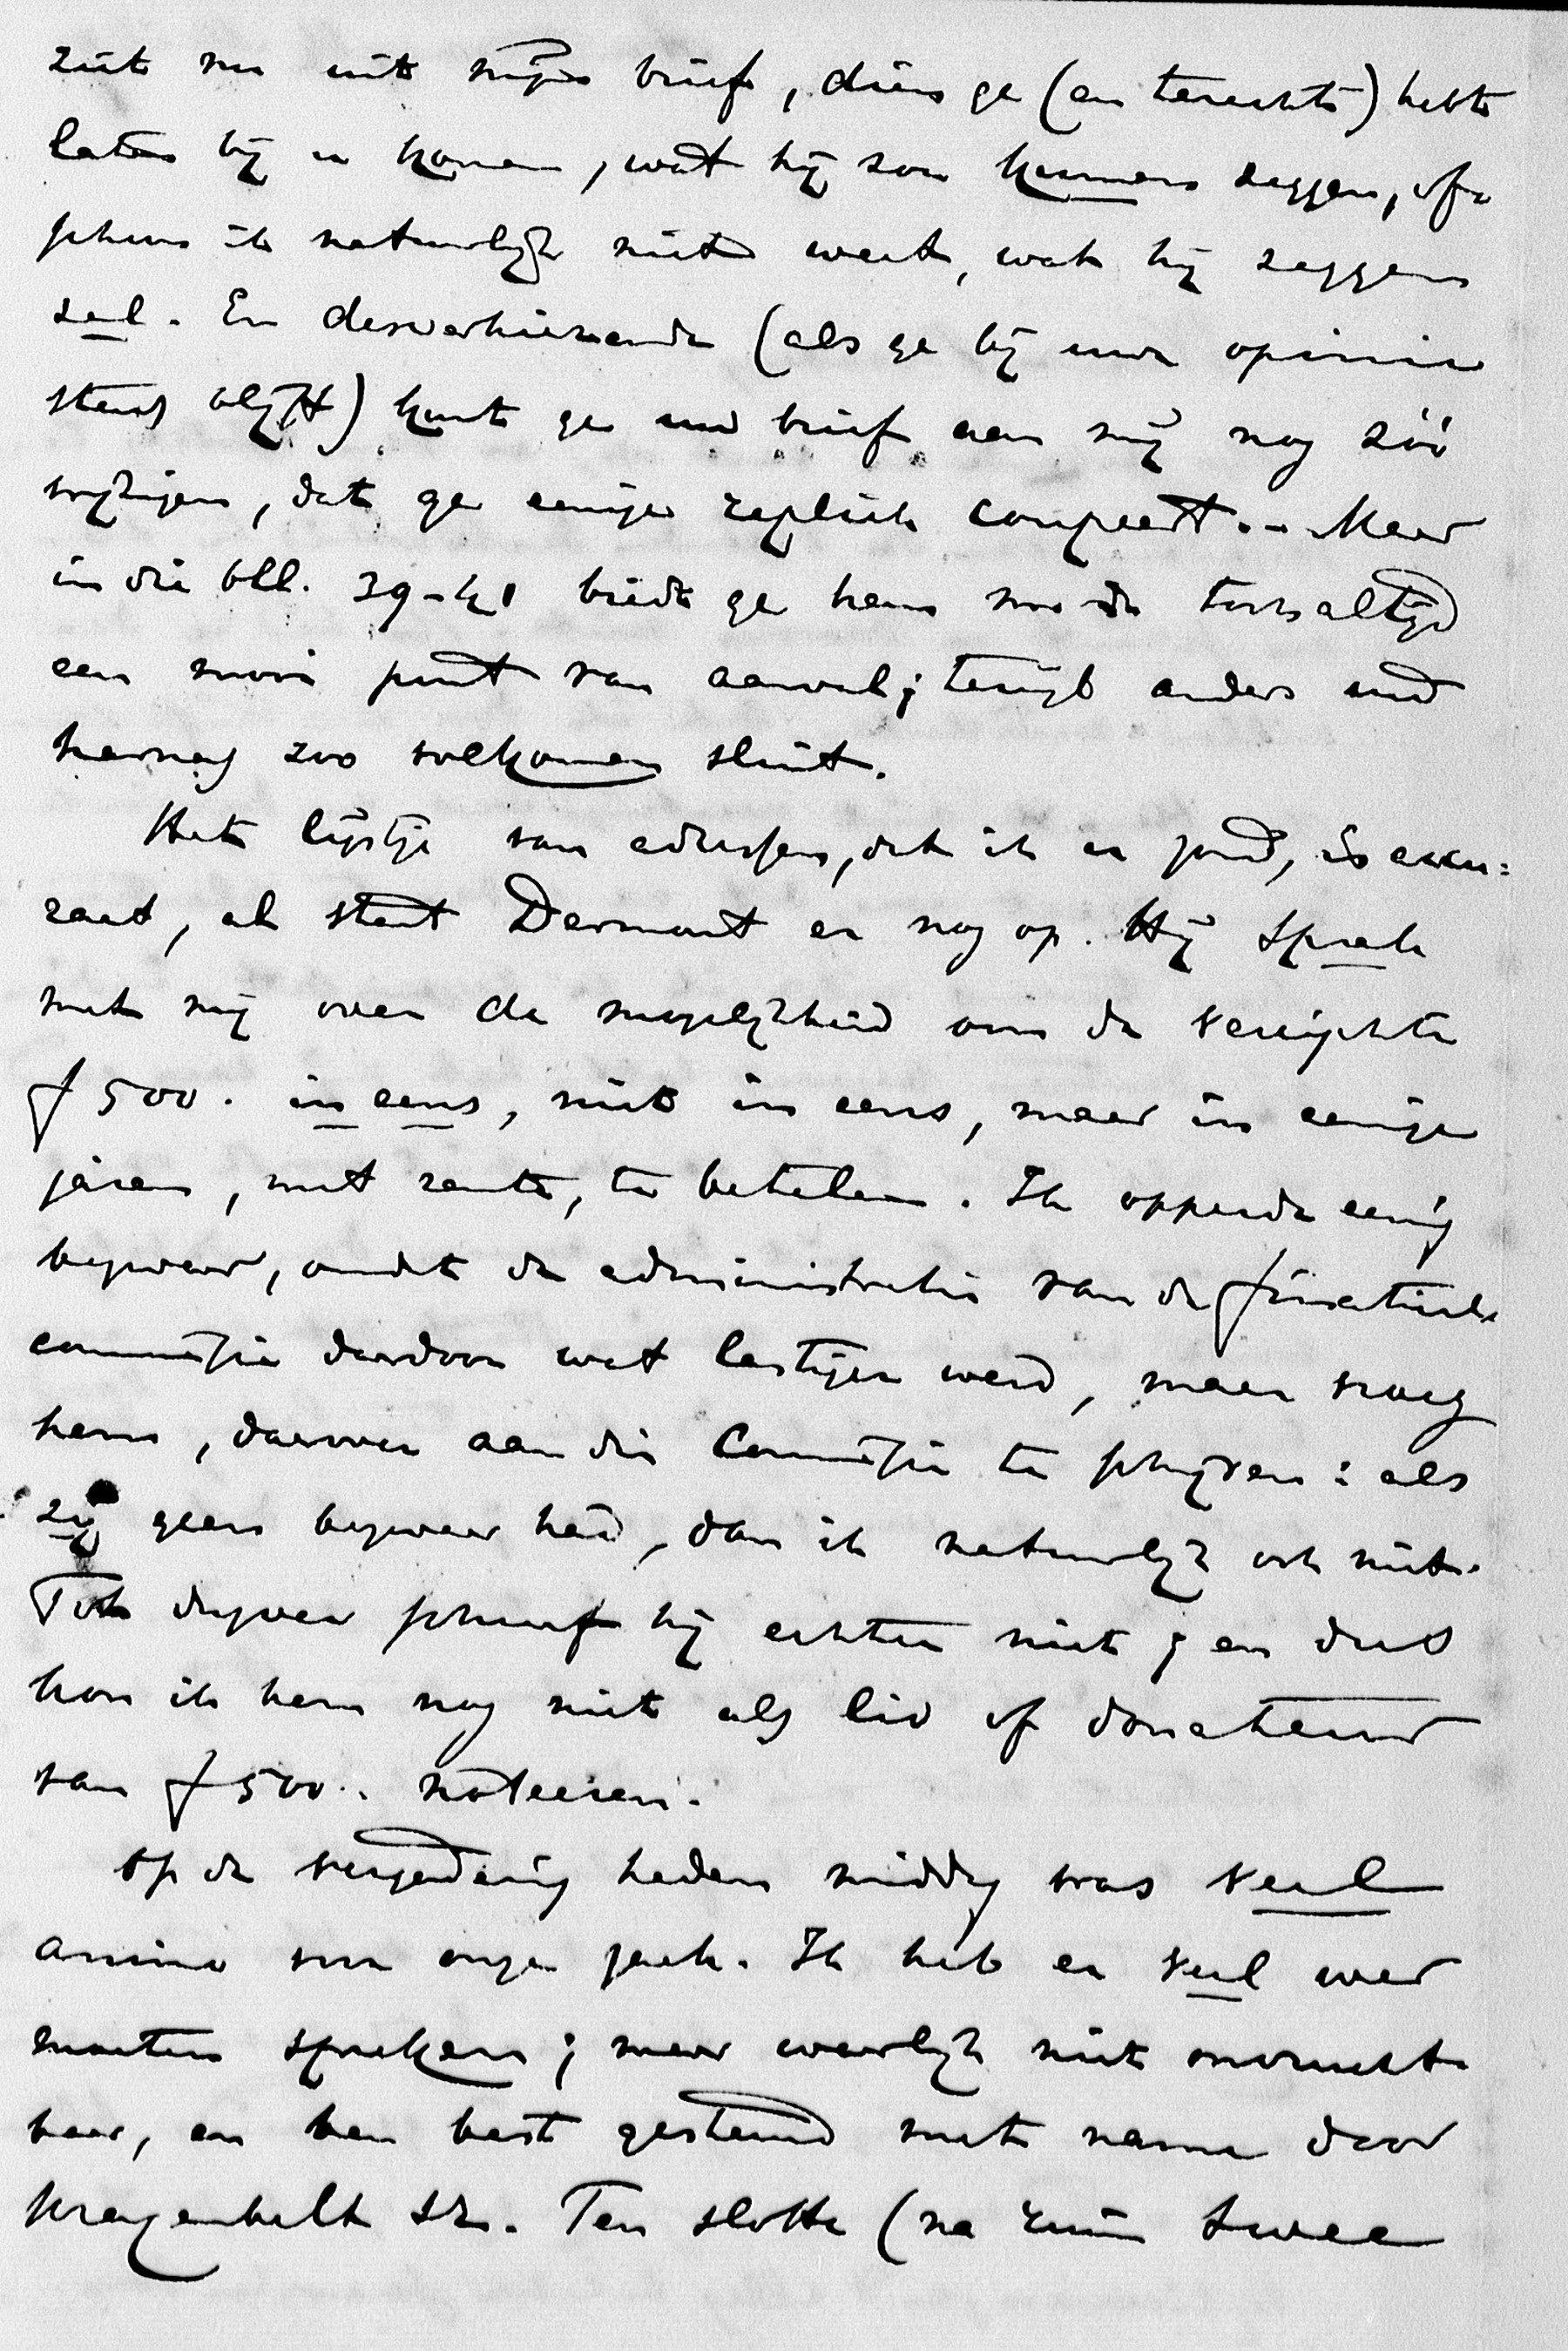 ziet nu uit mijn brief, dien ge (en terecht) hebt
laten bij u komen, wat hij zou kunnen zeggen, of=
schoon ik natuurlijk niet weet, wat hij zeggen
zal. En desverkiezende (als ge bij uwe opinie
steeds blijft) kunt ge uw brief aan mij nog zóó
wijzigen, dat ge eenige repliek coupeert. - Maar
in die bll. 39-41 biedt ge hem m. i. toch altijd
een mooi punt van aanval; terwijl anders uw
harnas zoo volkomen sluit.
Het lijstje van adressen, dat ik u zond, is accu=
raat, al staat Dermout er nog op. Hij sprak
met mij over de mogelijkheid om de vereischte
f 500. in eens, niet in eens, maar in eenige
jaren, met rente, te betalen. Ik opperde eenig
bezwaar, omdat de administratie van de financieele
commissie daardoor wat lastiger werd, maar vroeg
hem, daarover aan die Commissie te schrijven: als
zij geen bezwaar had, dan ik natuurlijk ook niet.
Tot dusver schreef hij echter niet; en dus
kon ik hem nog niet als lid of donateur
van f 500. noteeren.
Op de vergadering heden middag was veel
animo voor onze zaak. Ik heb er veel weer
moeten spreken; maar waarlijk niet onvrucht=
baar, en ben best gesteund met name door
Kragenbelt Sr. Ten slotte (na ruim twee